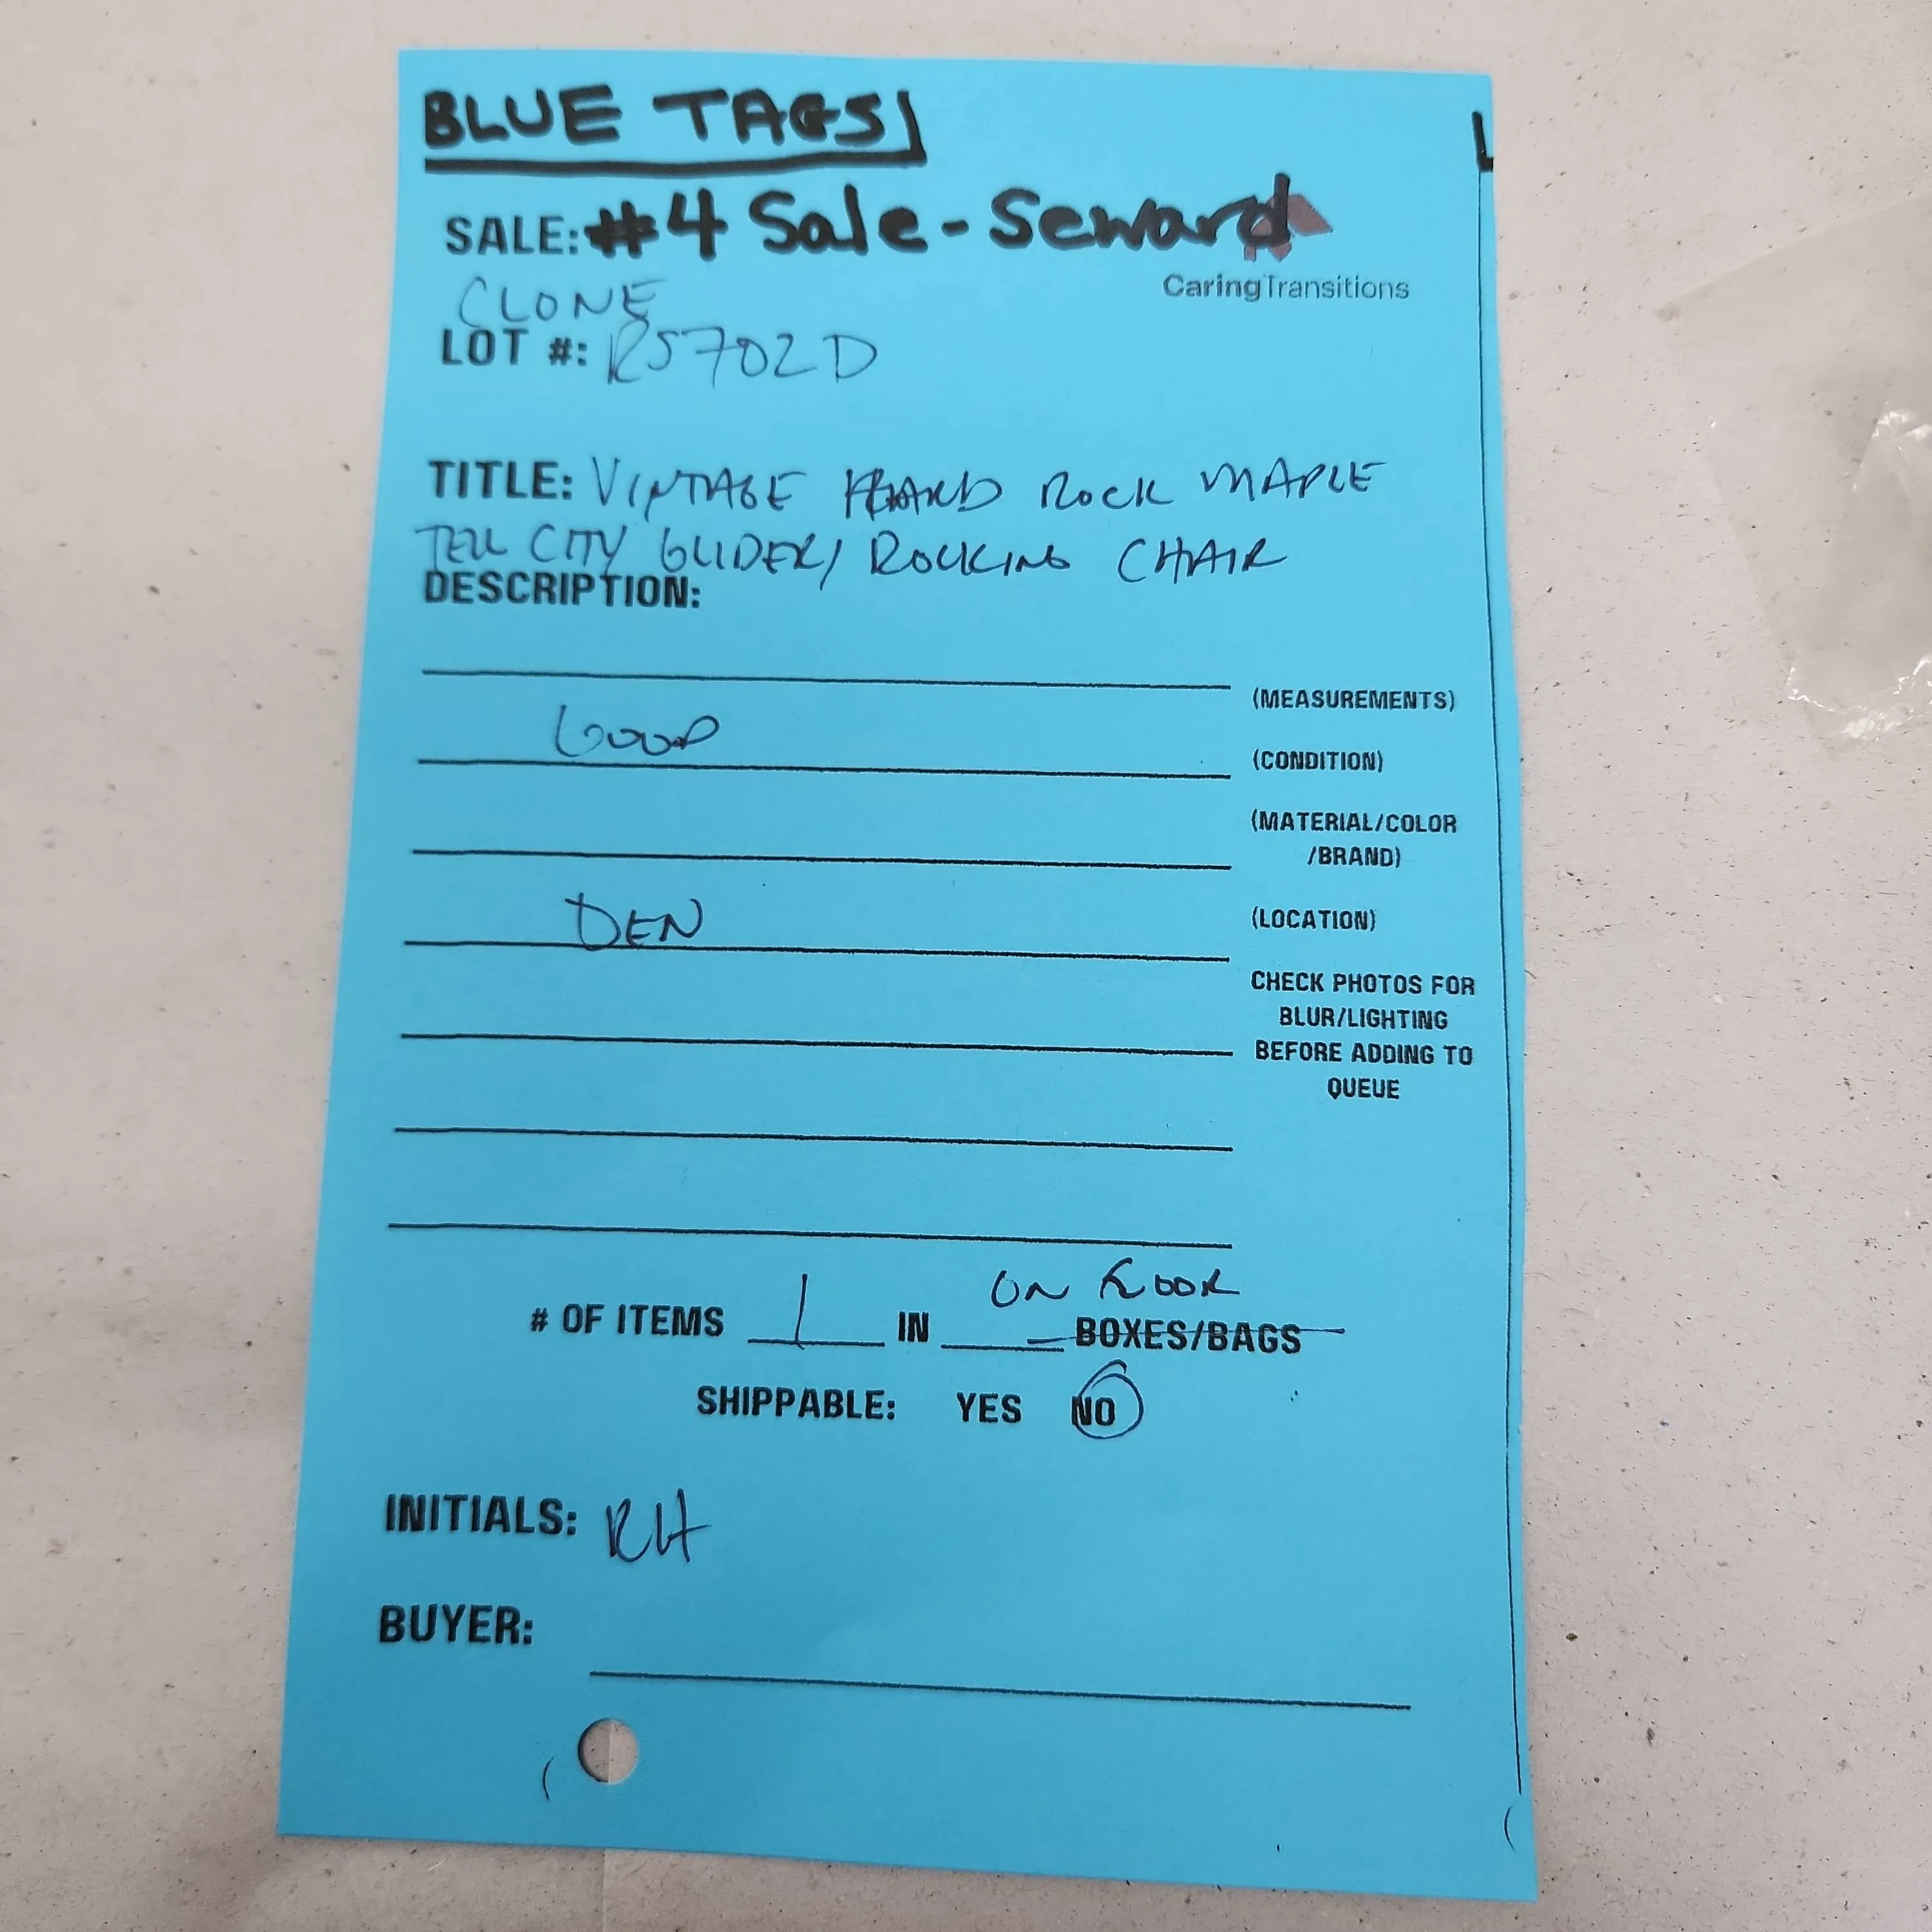 BLUE TAGS
SALE: #4 Sale - Seward
CaringTransitions
CLONE
LOT #: R5702D
TITLE: VINTAGE HARD ROCK MAPLE
TELL CITY GLIDER/ROCKING CHAIR
DESCRIPTION:
(MEASUREMENTS)
GOOD (CONDITION)
(MATERIAL/COLOR
/BRAND)
DEN (LOCATION)
CHECK PHOTOS FOR
BLUR/LIGHTING
BEFORE ADDING TO
QUEUE
ON FLOOR
# OF ITEMS 1 IN BOXES/BAGS
SHIPPABLE: YES NO
INITIALS: RH
BUYER: